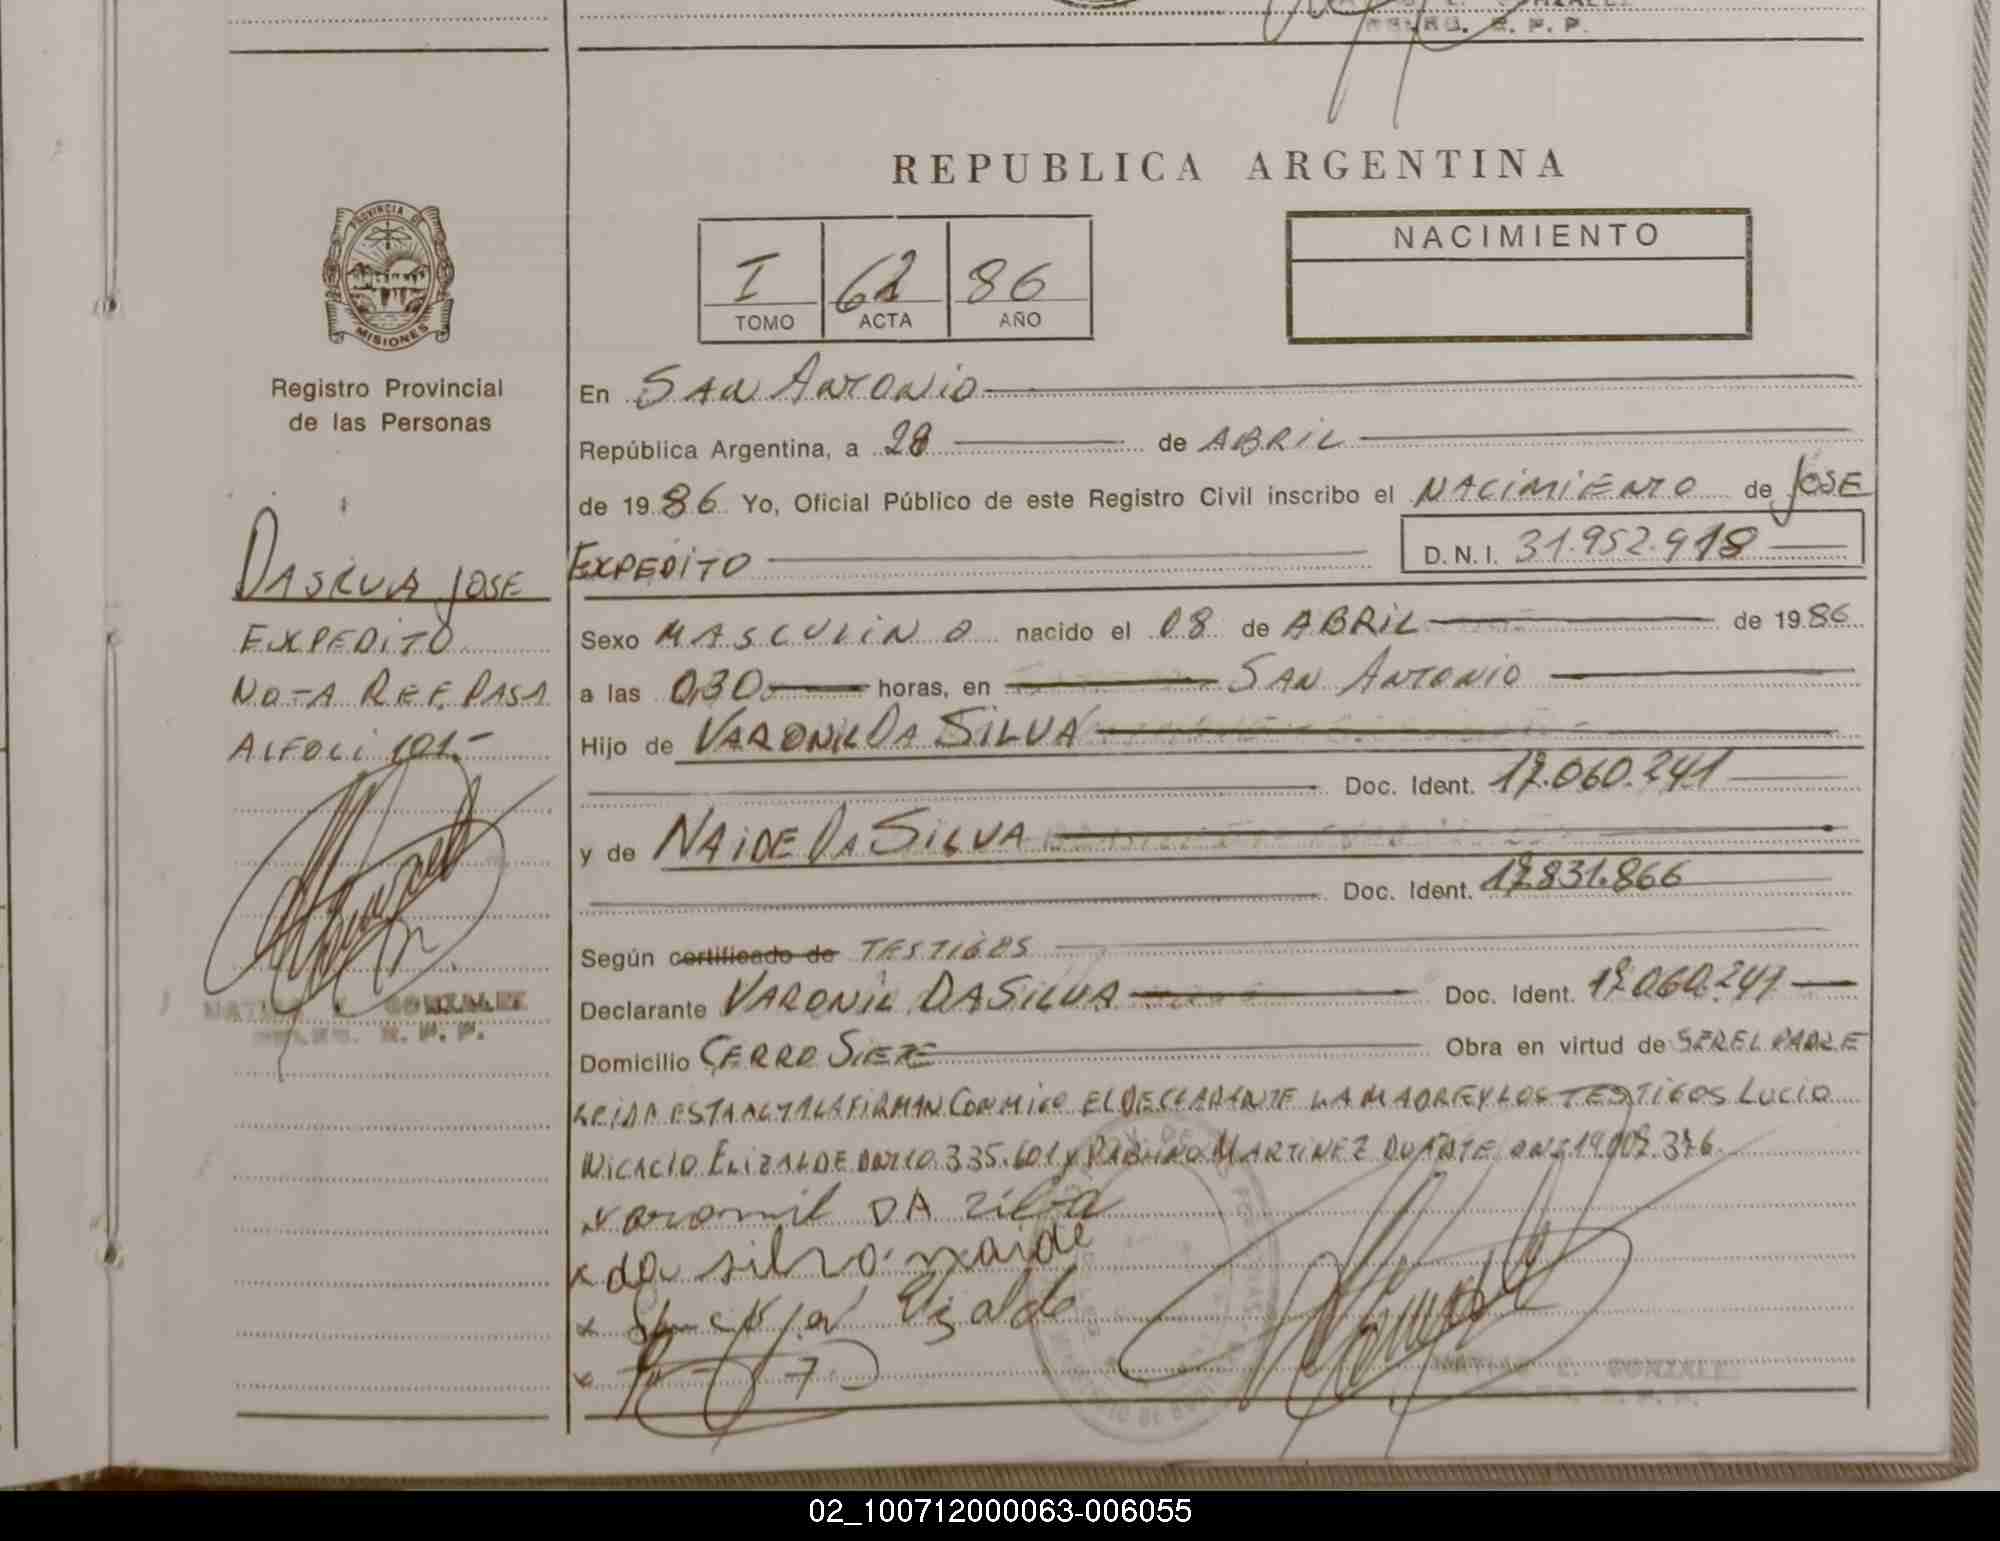 REPUBLICA ARGENTINA
PROVINCIA DE
MISIONES
Registro Provincial
de las Personas
I 62 86
TOMO ACTA AÑO
NACIMIENTO
En SAN ANTONIO
República Argentina, a 28 de ABRIL
de 1986 Yo, Oficial Público de este Registro Civil inscribo el NACIMIENTO de JOSE
EXPEDITO D.N.I. 31.952.918
Sexo MASCULINO nacido el 08 de ABRIL de 1986
a las 0,30 horas, en SAN ANTONIO
Hijo de VARONIL DA SILVA
Doc. Ident. 17.060.241
y de NAIDE DA SILVA
Doc. Ident. 17.831.866
Según certificado de TESTIGOS
Declarante VARONIL DA SILVA Doc. Ident. 17.060.241
Domicilio CERRO SIETE Obra en virtud de SER EL PADRE
LEIDA ESTA ACTA LA FIRMAN CONMIGO EL DECLARANTE LA MADRE Y LOS TESTIGOS LUCIO
NICACIO ELIZALDE 335.601 y MARTINEZ DUARTE DNI 19.007.376
varonil DA silva
x da silva naide
x
x
DASILVA JOSE
EXPEDITO
NOTA REF. PASA
AL FOLI 101.-
GONZALEZ
R. P. P.
GONZALEZ
R. P. P.
02_100712000063-006055